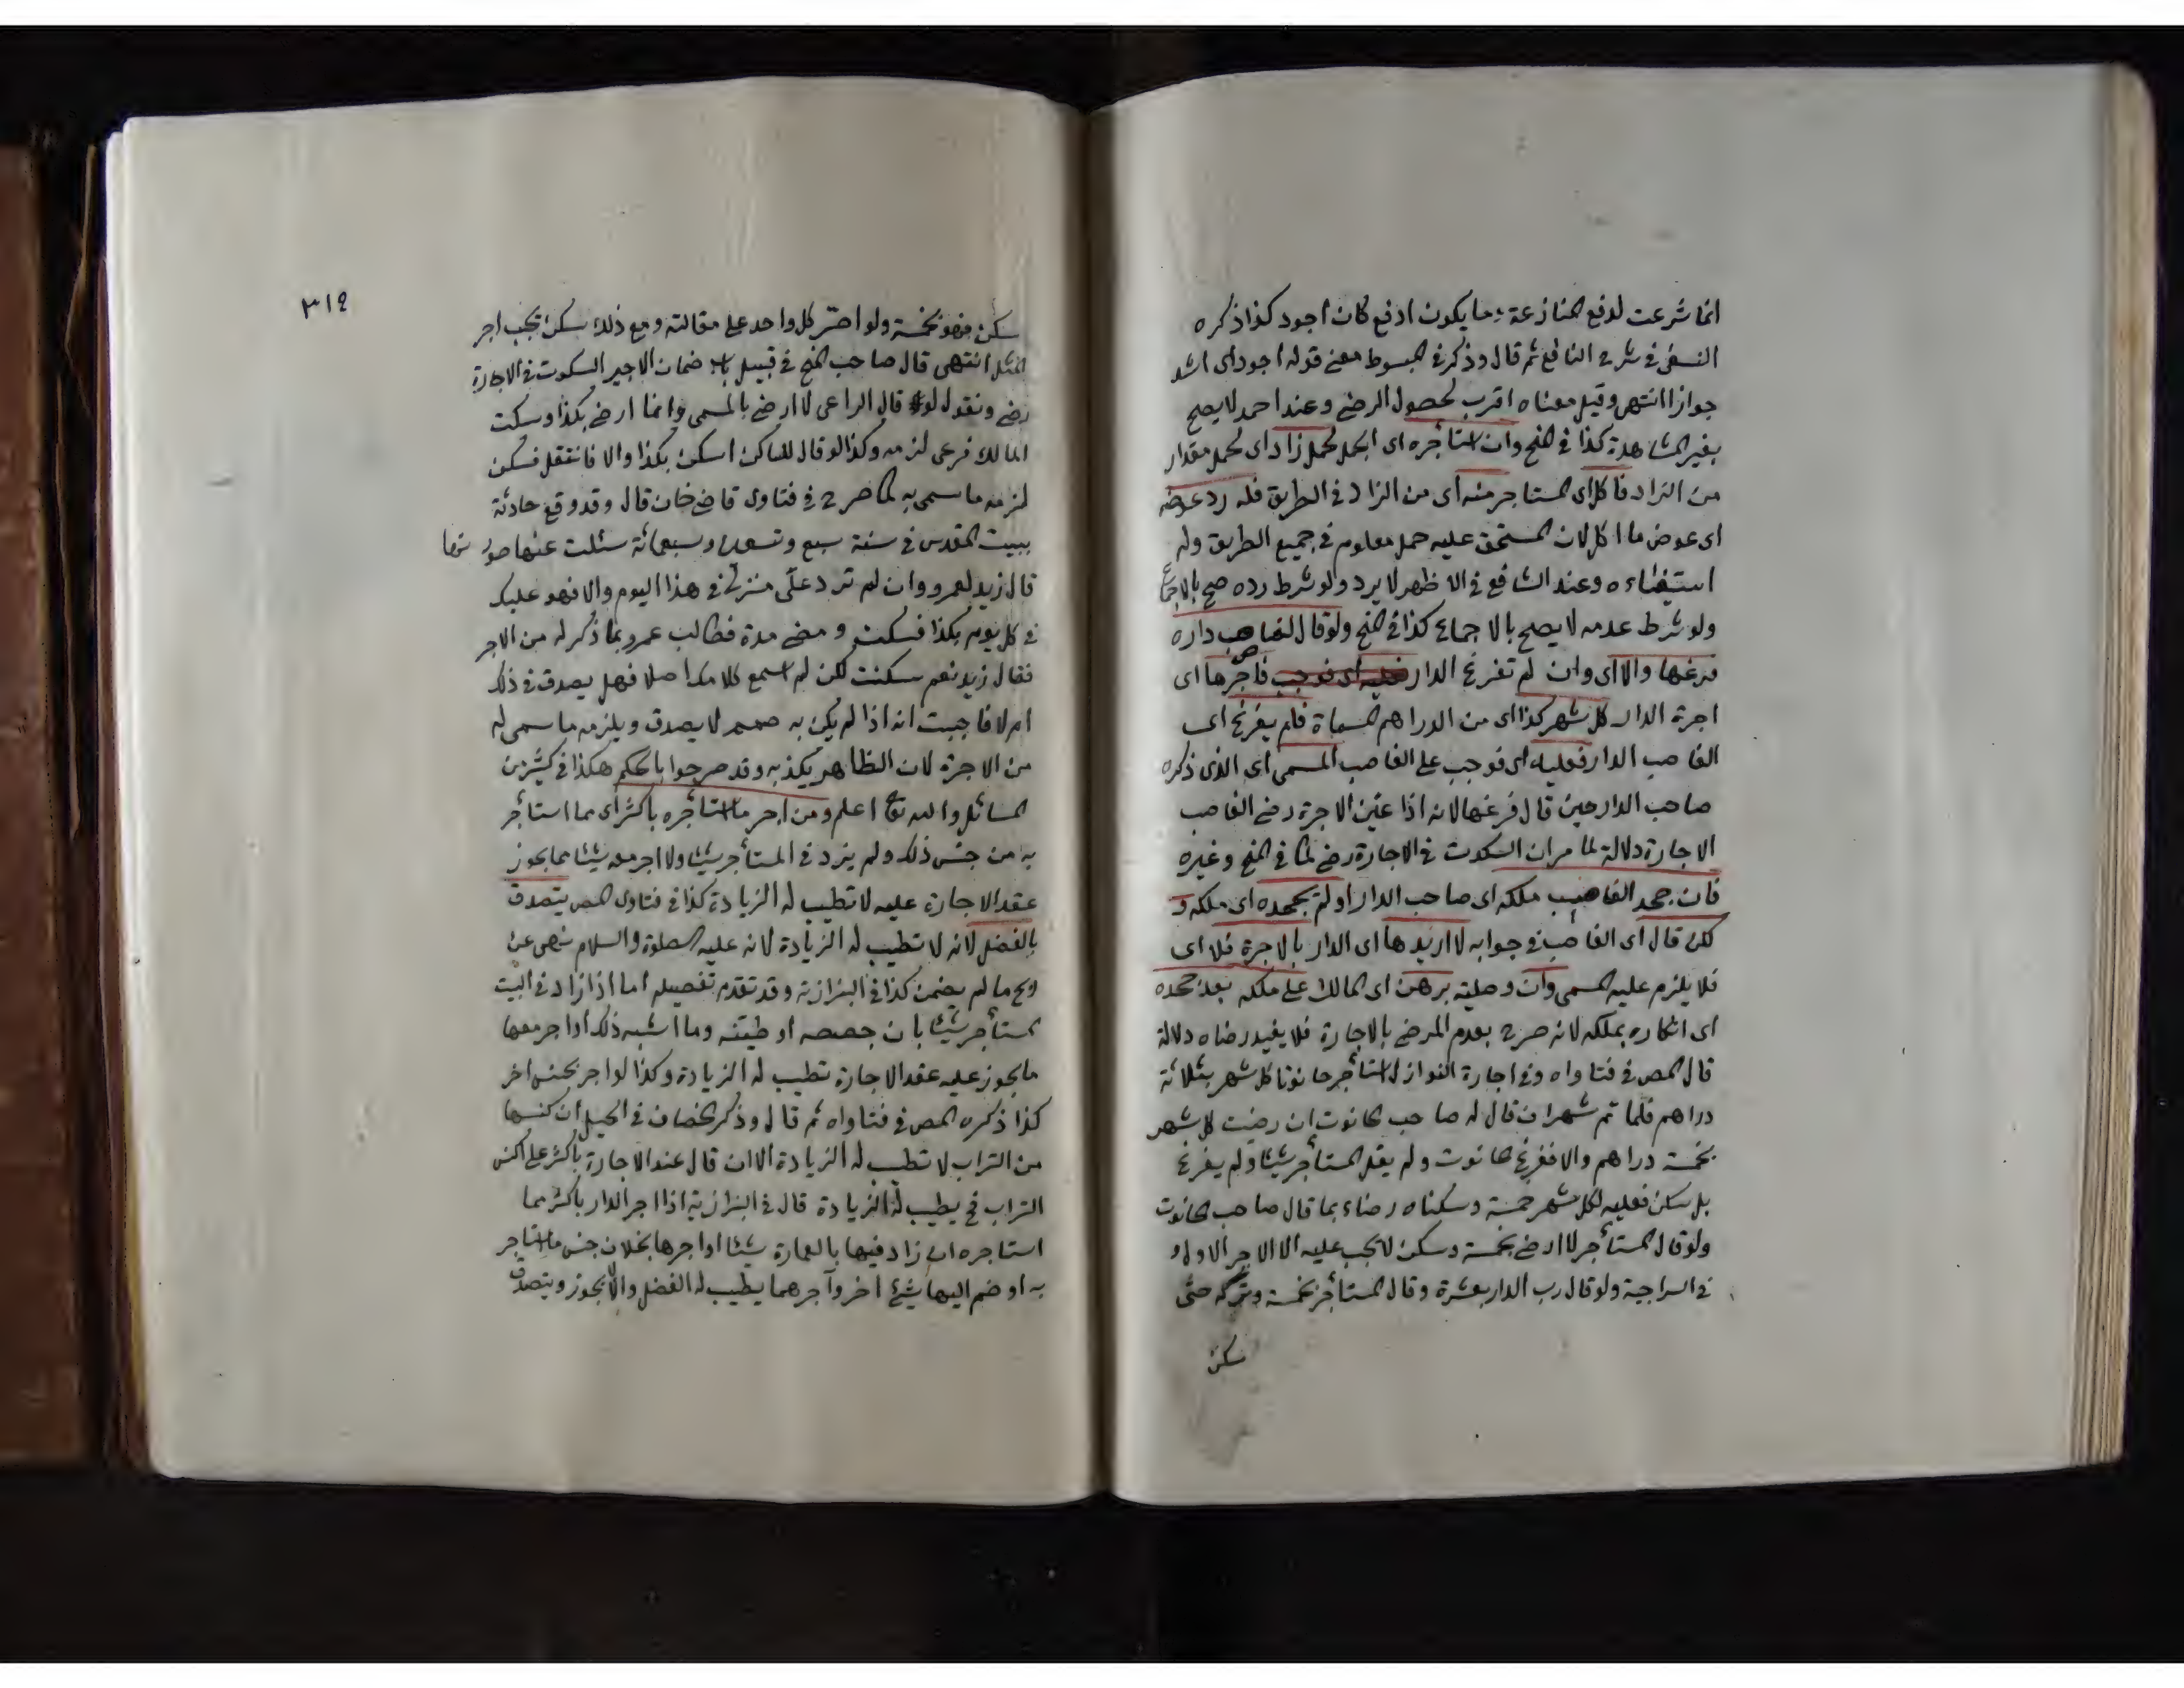 انما شرعت لدفع المنازعة فما يكون ادفع كان اجود كذا ذكره
النسفى فى شرح النافع ثم قال وذكر فى المبسوط معنى قوله اجود اى اشد
جوازا انتهى وقيل معناه اقرب لحصول الرضى وعند احمد لا يصح
بغير المشاهدة كذا فى المنح وان استأجره اى الجمل لحمل زاد اى لحمل مقدار
من الزاد فاكل اى المستاجر منه اى من الزاد فى الطريق فله رد عوضه
اى عوض ما اكل لان المستحق عليه حمل معلوم فى جميع الطريق وله
استيفاءه وعند الشافع فى الاظهر لا يرد ولو شرط رده صح بالاجماع
ولو شرط عدمه لا يصح بالاجماع كذا فى المنح ولو قال لغاصب داره
فرغها والا اى وان لم تفرغ الدار فاجرها اى
اجرة الدار كل شهر كذا اى من الدراهم المسماة فلم يفرغ اى
الغاصب الدار فعليه اى فوجب على الغاصب المسمى اى الذى ذكره
صاحب الدار حين قال فرغها لانه اذا عين الاجرة رضى الغاصب
الاجارة دلالة لما مر ان السكوت فى الاجارة رضى كما فى المنح وغيره
فان جحد الغاصب ملكه اى صاحب الدار او لم يجحده اى ملكه و
لكن قال اى الغاصب فى جوابه لا اريدها اى الدار بالاجرة فلا اى
فلا يلزم عليه المسمى وان وصلية برهن اى المالك على ملكه بعد جحده
اى انكاره بملكه لانه صرح بعدم المرضى بالاجارة فلا يفيد رضاه دلالة
قال المص فى فتاواه وفى اجارة النوازل استأجر حانوتا كل شهر بثلاثة
دراهم فلما تم شهران قال له صاحب الحانوت ان رضيت كل شهر
بخمسة دراهم والا ففرغ الحانوت ولم يقل المستأجر شيئا ولم يفرغ
بل سكن فعليه لكل شهر خمسة وسكناه رضاء بما قال صاحب الحانوت
ولو قال المستأجر لا ارضى بخمسة وسكن لا يجب عليه الا الاجر الاول و
فى السراجية ولو قال رب الدار بعشرة وقال المستأجر بخمسة وتركه حتى
سكن
٣١٤
سكن فهو بخمسة ولو اصر كل واحد على مقالته ومع ذلك سكن يجب اجر
المثل انتهى قال صاحب المنح فى قبيل باب ضمان الاجير السكوت فى الاجارة
رضى ونقول لو قال الراعى لا ارضى بالمسمى وانما ارضى بكذا وسكت
المالك فرعى لزمه وكذا لو قال للساكن اسكن بكذا والا فانتقل فسكن
لزمه ما سمى به كما صرح فى فتاوى قاضى خان قال وقد وقع حادثة
ببيت المقدس فى سنة سبع وتسعين وسبعمائة سئلت عنها صورتها
قال زيد لعمرو وان لم ترد على منزلى فى هذا اليوم والا فهو عليك
فى كل يوم بكذا فسكت ومضى مدة فطالب عمرو بما ذكر له من الاجر
فقال زيد نعم سكنت لكن لم اسمع كلامك اصلا فهل يصدق فى ذلك
ام لا فاجبت انه اذا لم يكن به صمم لا يصدق ويلزمه ما سمى له
من الاجرة لان الظاهر يكذبه وقد صرحوا بالحكم هكذا فى كثير من
المسائل والله تع اعلم ومن اجر ما استأجره باكثر اى مما استأجر
به من جنس ذلك ولم يزد فى المستأجر شيئا ولا اجر معه شيئا مما يجوز
عقد الاجارة عليه لا تطيب له الزيادة كذا فى فتاوى المص يتصدق
بالفضل لانه لا تطيب له الزيادة لانه عليه الصلوة والسلام نهى عن
ربح ما لم يضمن كذا فى البزازية وقد تقدم تفصيله اما اذا زاد فى البيت
المستأجر شيئا بان جصصه او طينه وما اشبه ذلك او اجر معها
ما يجوز عليه عقد الاجارة تطيب له الزيادة وكذا لو اجر بجنس اخر
كذا ذكره المص فى فتاواه ثم قال وذكر الخصاف فى الحيل ان كنسها
من التراب لا تطيب له الزيادة الا ان قال عند الاجارة باكثر على اكنس
التراب فح يطيب له الزيادة قال فى البزازية اذا اجر الدار باكثر مما
استاجره ان زاد فيها بالعمارة شيئا او اجرها بخلاف جنس ما استاجر
به او ضم اليها شيئ اخر وآجرهما يطيب له الفضل والا يجوز ويتصدق